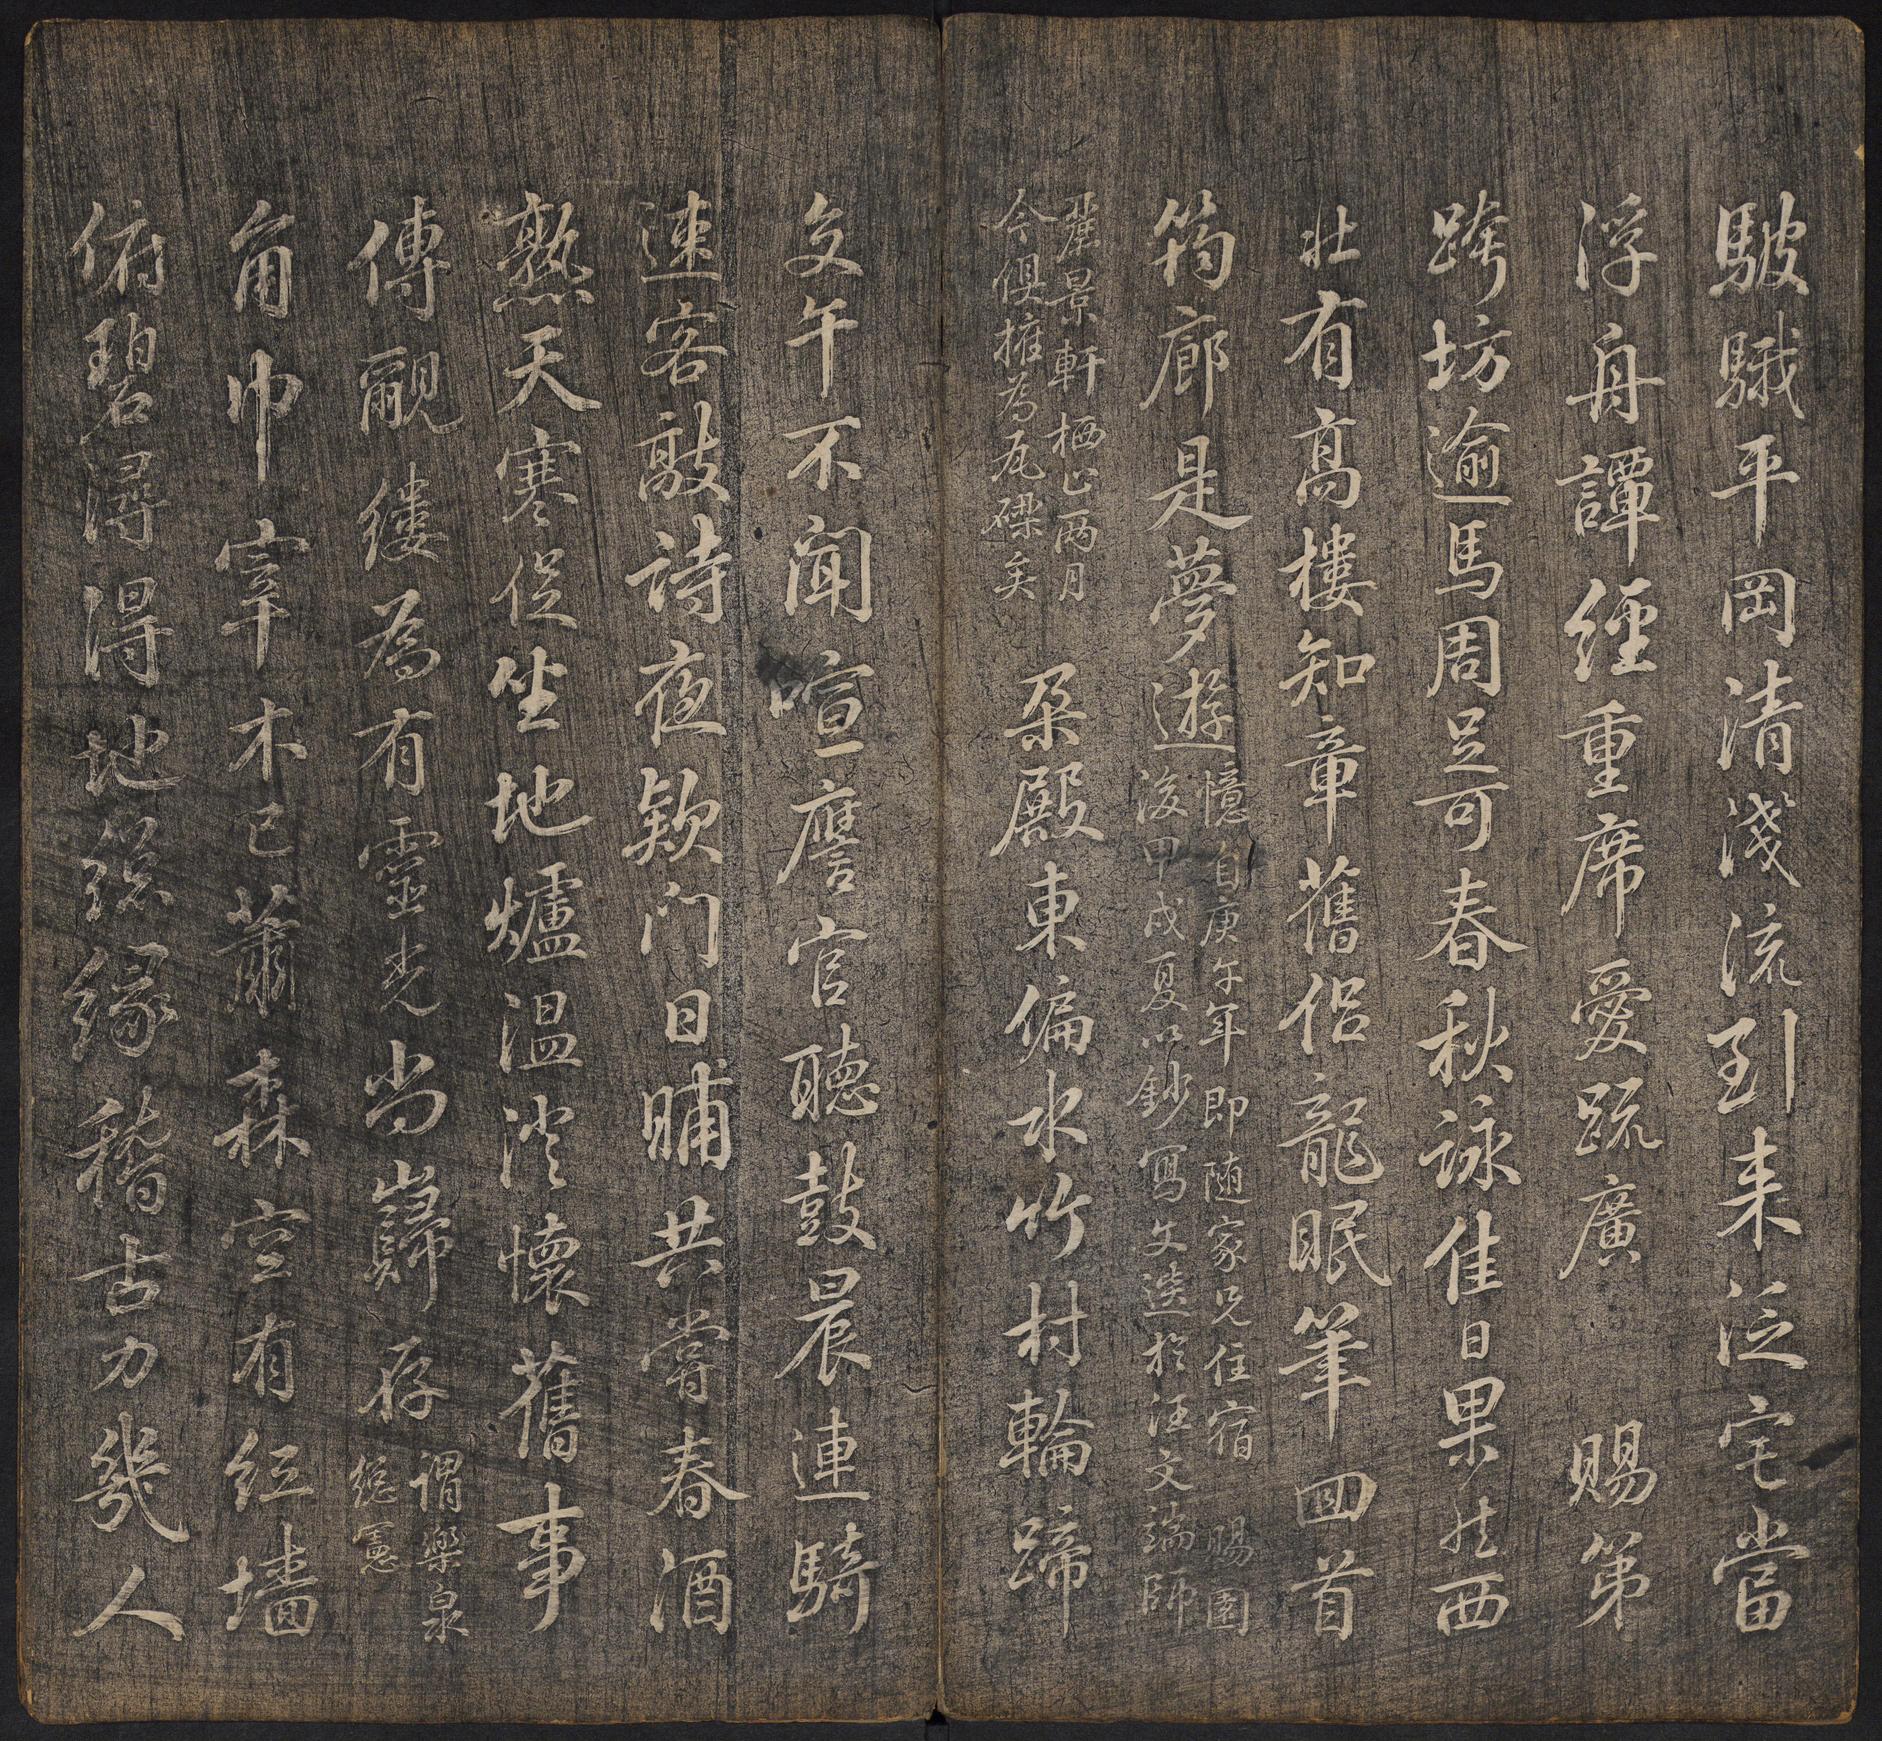 駊騀平岡清淺流到来泛宅當
浮舟譚經重席愛疏廣 賜第
跨坊逾馬周足可春秋詠佳日果然西
壯有高樓知章舊侶龍眠筆回首
筠廊是夢遊
憶自庚午年即随家兄住宿 賜園
後甲戌夏以鈔寫文选於汪文端師
麗景軒栖止两月
今俱摧為瓦礫矣
朵殿東偏水竹村輪蹄
交午不聞喧譍官聽鼓晨連騎
速客敲詩夜款门日晡共嘗春酒
熟天寒促坐地爐温澄懷舊事
傳覼缕為有靈光尚巋存
谓樂泉
總憲
角巾宰木已蕭森空有红墙
俯碧潯得地總緣稽古力幾人